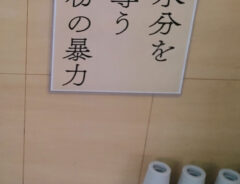 水分を
奪う
粉の暴力